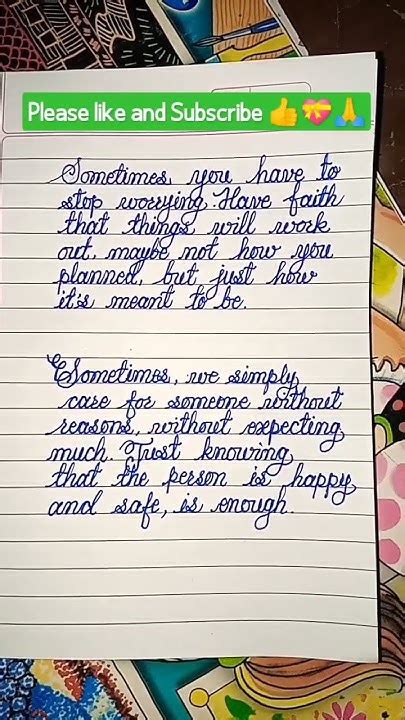 Please like and Subscribe 👍💝🙏
Sometimes, you have to
stop worrying. Have faith
that things will work
out, maybe not how you
planned, but just how
it's meant to be.
Sometimes, we simply
care for someone without
reasons, without expecting
much. Just knowing
that the person is happy
and safe, is enough.